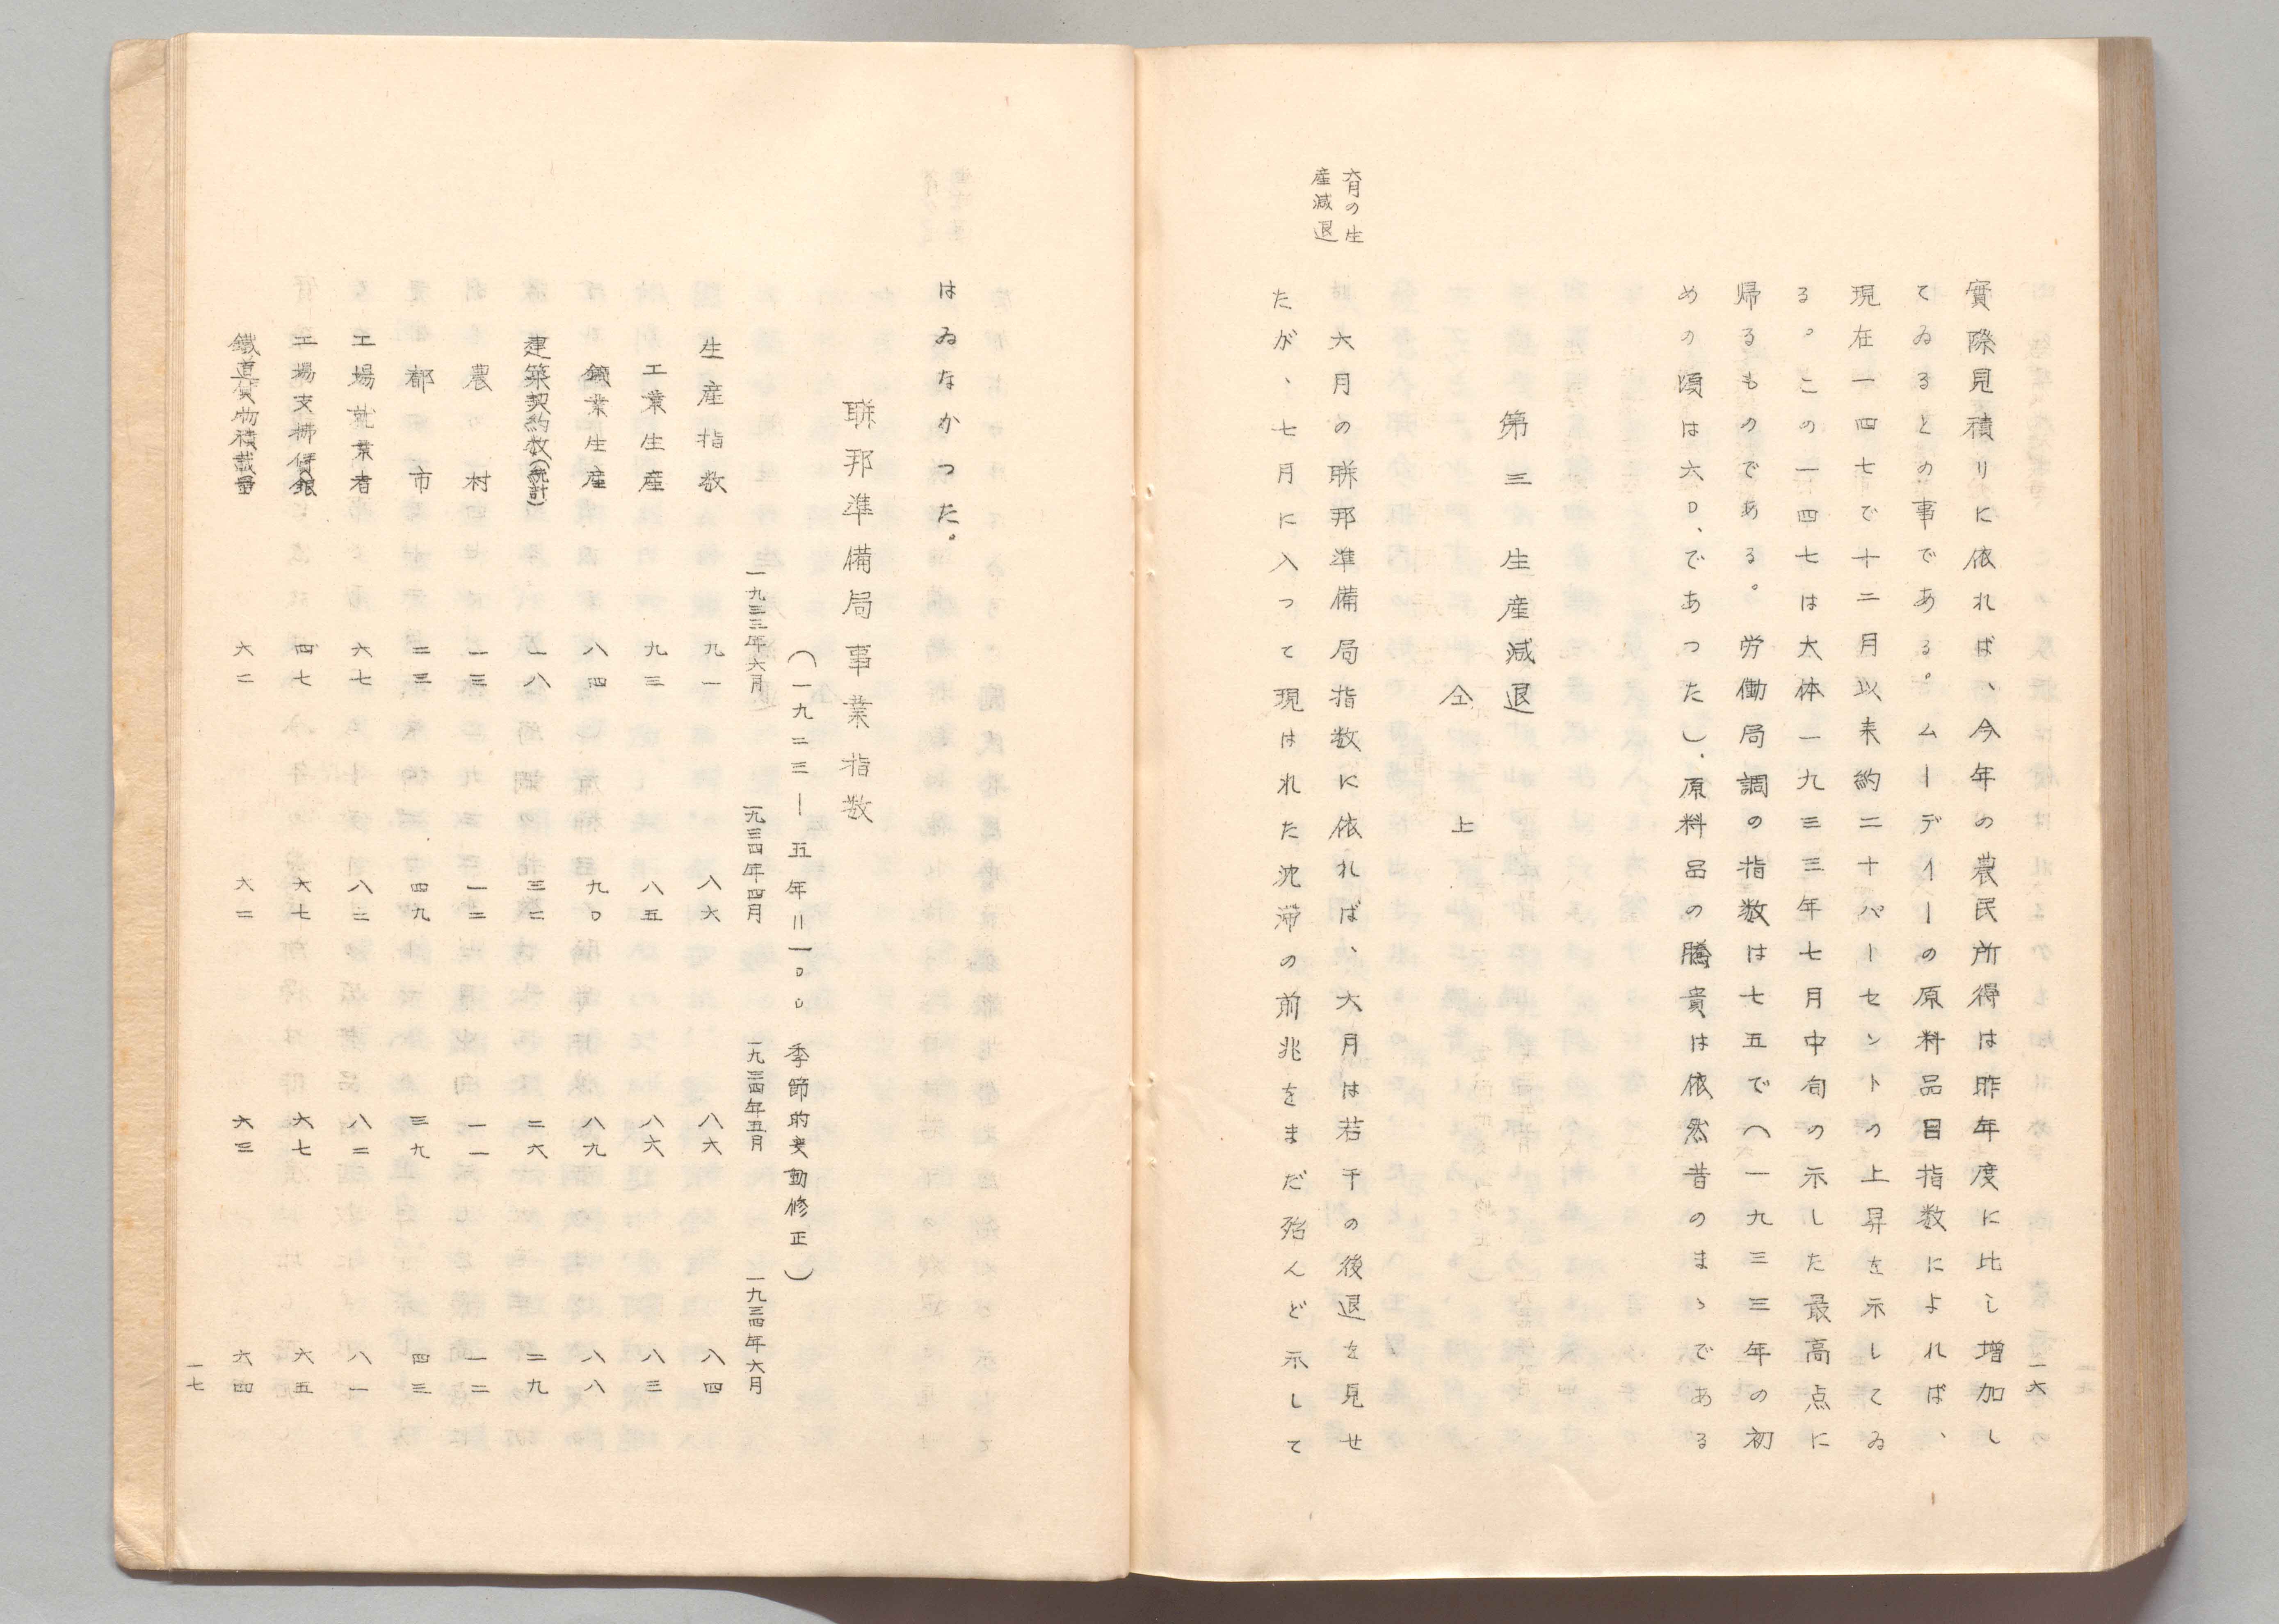 一六
實際見積りに依れば、今年の農民所得は昨年度に比し增加し
てゐるとの事である。ムーデイーの原料品目指数によれば、
現在一四七で十二月以来約二十パーセントの上昇を示してゐ
る。この一四七は大体一九三三年七月中旬の示した最高点に
帰るものである。労働局調の指数は七五で(一九三三年の初
めの頃は六〇、であつた)、原料品の騰貴は依然昔のまゝである
第三 生産減退
仝 上
六月の生
産減退
六月の聯邦準備局指数に依れば、六月は若干の後退を見せ
たが、七月に入つて現はれた沈滞の前兆をまだ殆んど示して
はゐなかつた。
聯邦準備局事業指数
(一九二三ー五年=一〇〇 季節的変動修正)
一九三三年六月 一九三四年四月 一九三四年五月 一九三四年六月
生産指数 九一 八六 八六 八四
工業生産 九三 八五 八六 八三
鑛業生産 八四 九〇 八九 八八
建築契約数(統計) 一八 三二 二六 二九
農村 一三 一二 一一 一二
都市 二三 四九 三九 四三
工場就業者 六七 八二 八二 八一
工場支拂賃銀 四七 六七 六七 六五
鐵道貨物積載量 六二 六二 六三 六四
一七